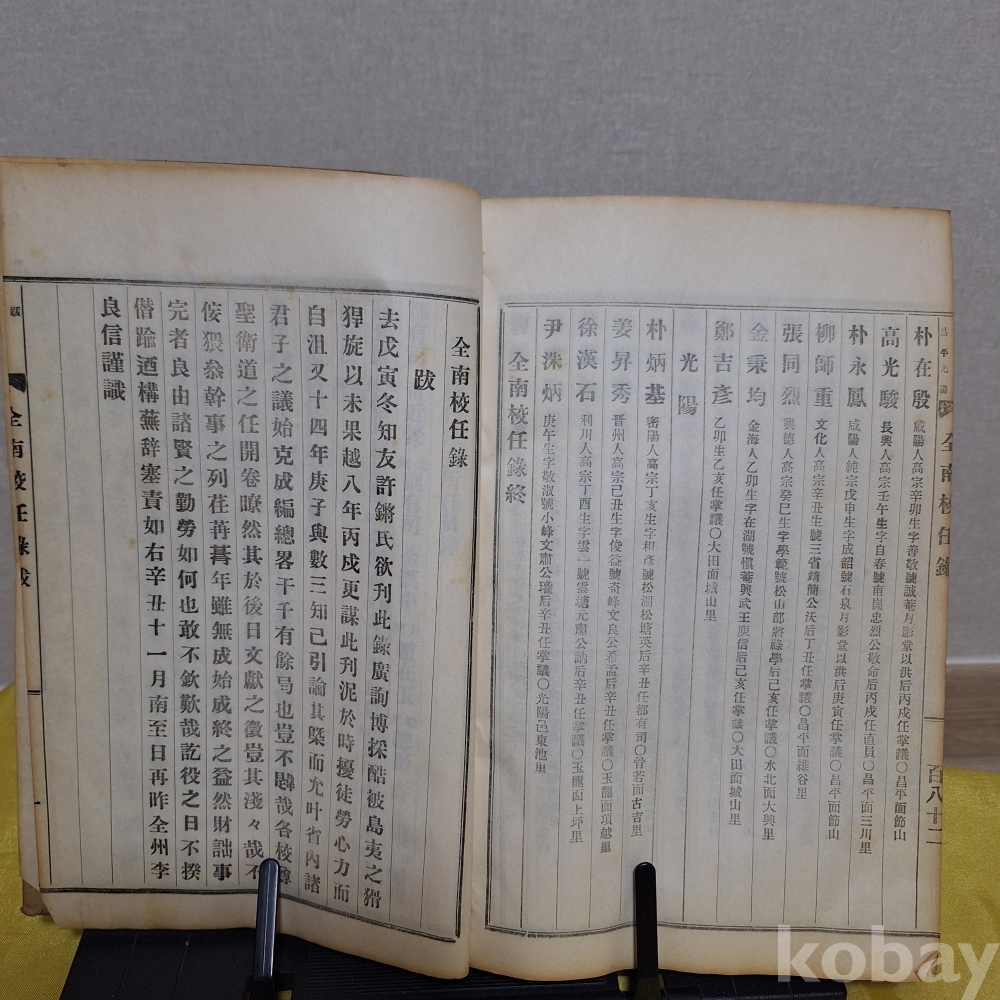 全南校任錄
百八十二
朴在殷 咸陽人高宗辛卯生字善敬號誠菴月影堂以洪后丙戌任掌議〇昌平面節山
高光駿 長興人高宗壬午生字自春號南崗忠烈公敬命后丙戌任直員〇昌平面三川里
朴永鳳 咸陽人純宗戊申生字成韶號石泉月影堂以洪后庚寅任掌議〇昌平面
柳師重 文化人高宗辛丑生號三省靖簡公沃后丁丑任掌議〇昌平面維谷里
張同烈 興德人高宗癸巳生字學範號松山部將祿學后己亥任掌議〇水北面大興里
金秉均 金海人乙卯生字在湖號愼菴興武王庾信后己亥任掌議〇大田面城山里
鄭吉彥 乙卯生乙亥任掌議〇大田面城山里
光陽
朴炳基 密陽人高宗丁亥生字相彥號松湖松塘英后辛丑任都有司〇骨若面古吉里
姜昇秀 晉州人高宗己丑生字俊益號奇峰文良公希孟后辛丑任掌議〇玉龍面項越里
徐漢石 利川人高宗丁酉生字雲一號雲塘元肅公訥后辛丑任掌議〇玉龍面上坪里
尹洙炳 庚午生字敬淑號小峰文肅公瓘后辛丑任掌議〇光陽邑東池里
全南校任錄終
全南校任錄
跋
去戊寅冬知友許鏘氏欲刊此錄廣詢博採酷被島夷之猾
猂旋以未果越八年丙戌更謀此刊泥於時擾徒勞心力而
自沮又十四年庚子與數三知己引論其槩而允叶省內諸
君子之議始克成編總畧干千有餘局也豈不韙哉各校尊
聖衛道之任開卷瞭然其於後日文獻之徵豈其淺々哉不
侫猥叅幹事之列荏苒朞年雖無成始成終之益然財詘事
完者良由諸賢之勤勞如何也敢不欽歎哉訖役之日不揆
僭踰迺構蕪辞塞責如右辛丑十一月南至日再昨全州李
良信謹識
跋
全南校任錄 跋
一
kobay